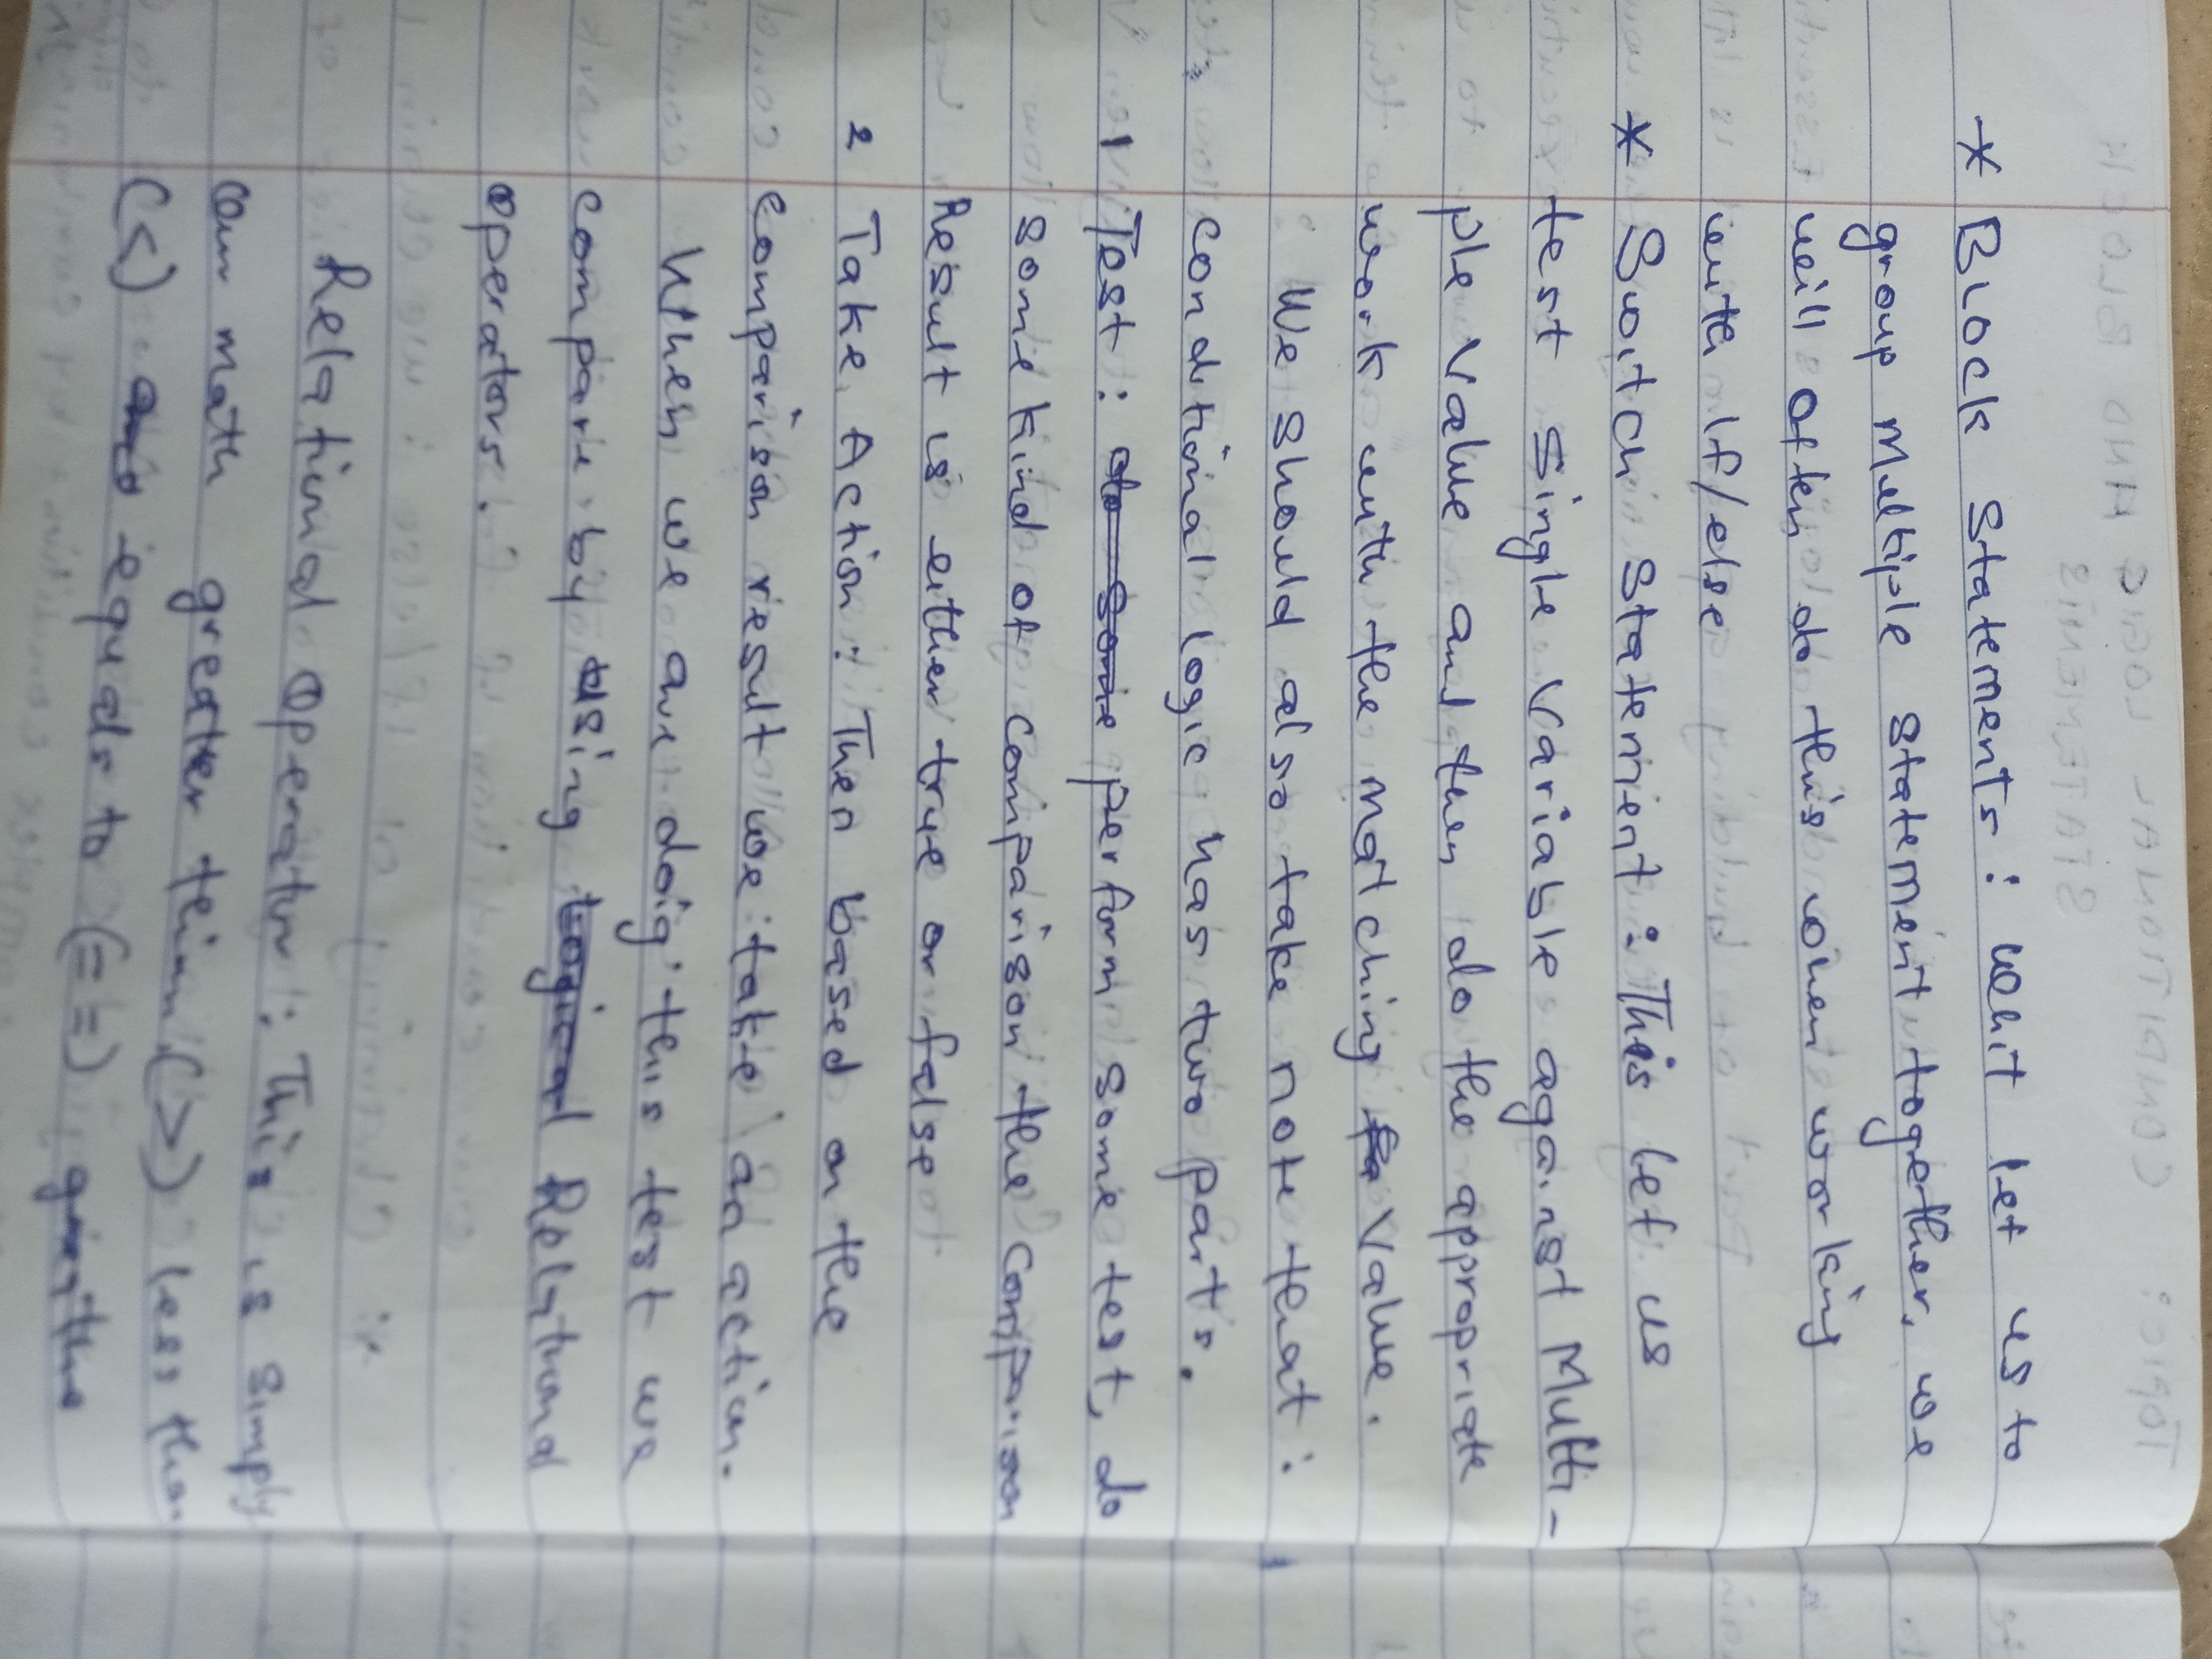 * Block Statements: whit let us to
group Multiple Statement together, we
will often do this when working
with If/else
* Switch Statement: This let us
test Single Variable against Multi-
ple Value and then do the appropriate
work with the matching Value.
We should also take note that:
conditional logic has two parts.
1 Test: perform some test, do
some kind of comparison the comparison
Result is either true or false
2 Take Action: Then based on the
comparison result we take an action.
When we are doig this test we
compare by using Relational
operators.
Relational Operator: This is simply
our math greater than (>) less than
(<) equals to (==)